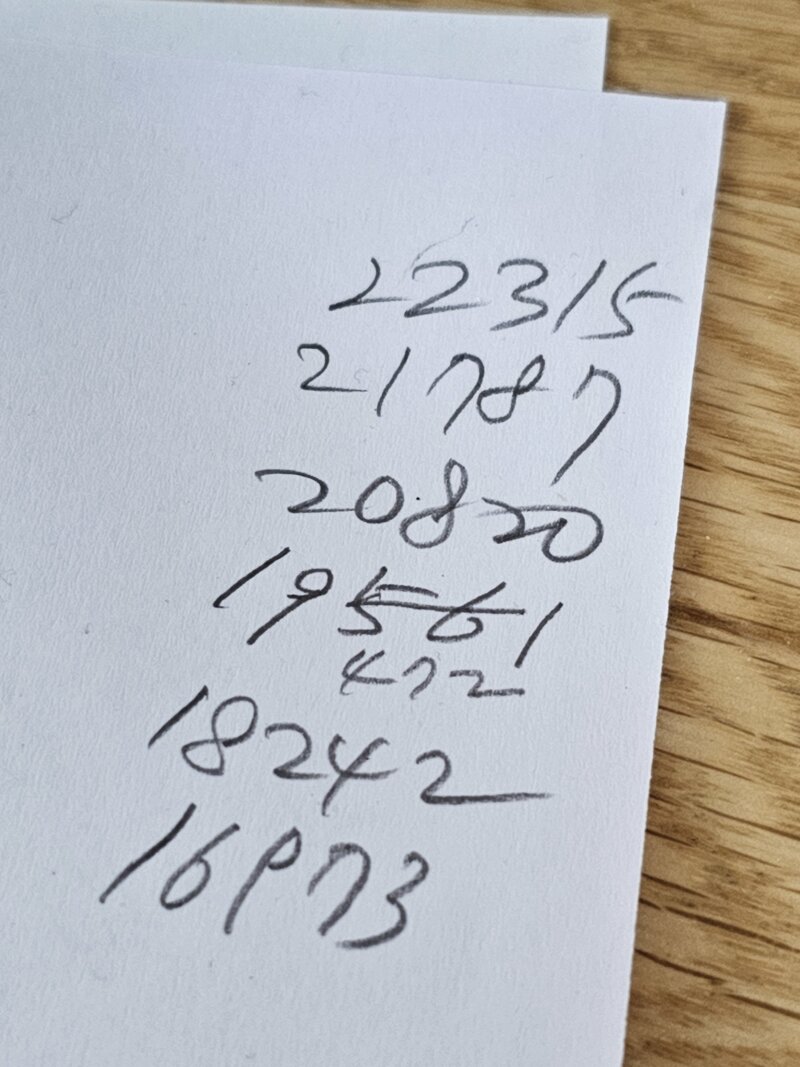 22315
21787
20820
19561
472
18242
16973